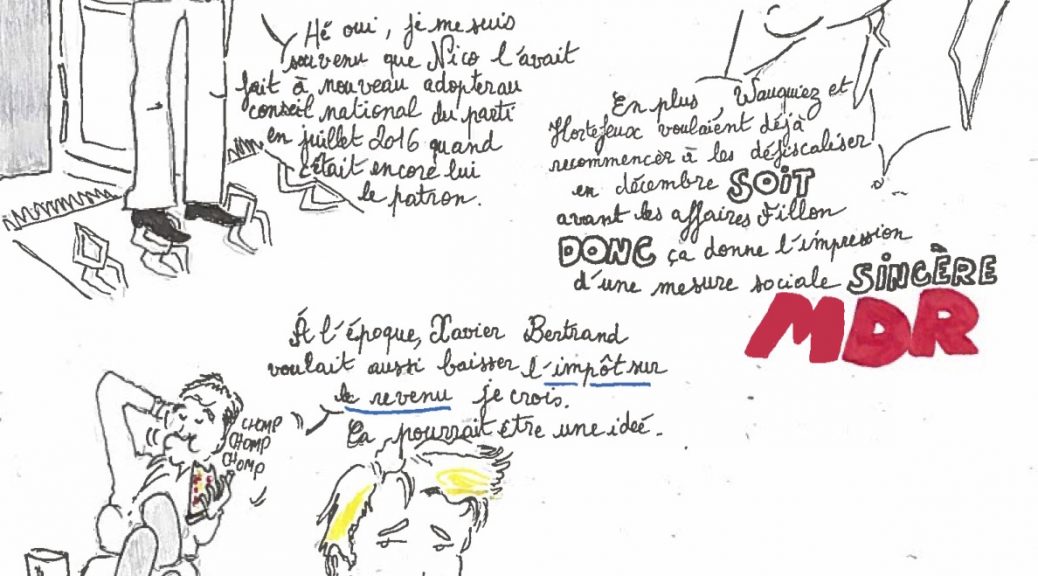 Hé oui, je me suis
souvenu que Nico l'avait
fait à nouveau adopterau
conseil national du parti
en juillet 2016 quand
c'était encore lui
le patron.
En plus, Wauquiez et
Hortefeux voulaient déjà
recommencer à les défiscaliser
en décembre SOIT
avant les affaires Fillon
DONC ça donne l'impression
d'une mesure sociale SINCÈRE
MDR
À l'époque, Xavier Bertrand
voulait aussi baisser l'impôt sur
le revenu je crois.
Ça pourrait être une ideé.
CHOMP
CHOMP
CHOMP